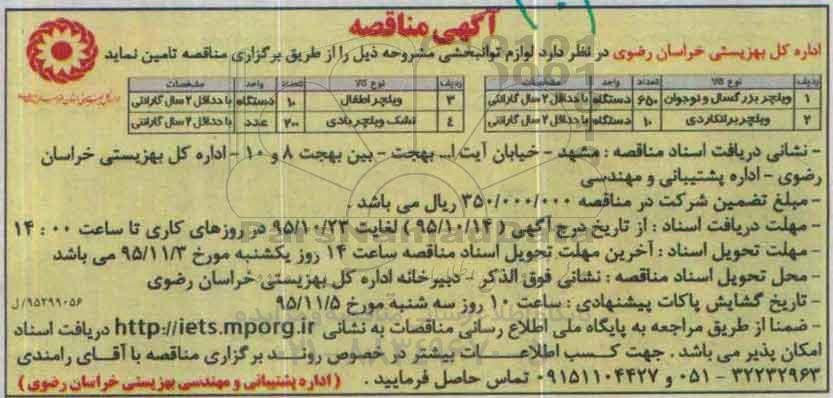 آگهی مناقصه
اداره کل بهزیستی خراسان رضوی در نظر دارد لوازم توانبخشی مشروحه ذیل را از طریق برگزاری مناقصه تامین نماید
ردیف نوع کالا تعداد واحد مشخصات
۱ ویلچر بزرگسال و نوجوان ۶۵۰ دستگاه با حداقل ۲ سال گارانتی
۲ ویلچر برانکاردی ۱۰ دستگاه با حداقل ۲ سال گارانتی
ردیف نوع کالا تعداد واحد مشخصات
۳ ویلچر اطفال ۱۰ دستگاه با حداقل ۲ سال گارانتی
۴ تشک ویلچر بادی ۲۰۰ عدد با حداقل ۲ سال گارانتی
- نشانی دریافت اسناد مناقصه : مشهد - خیابان آیت ا... بهجت - بین بهجت ۸ و ۱۰ - اداره کل بهزیستی خراسان
رضوی - اداره پشتیبانی و مهندسی
- مبلغ تضمین شرکت در مناقصه ۳۵۰/۰۰۰/۰۰۰ ریال می باشد .
- مهلت دریافت اسناد : از تاریخ درج آگهی ( ۹۵/۱۰/۱۴ ) لغایت ۹۵/۱۰/۲۳ در روزهای کاری تا ساعت ۰۰ : ۱۴
- مهلت تحویل اسناد : آخرین مهلت تحویل اسناد مناقصه ساعت ۱۴ روز یکشنبه مورخ ۹۵/۱۱/۳ می باشد
- محل تحویل اسناد مناقصه : نشانی فوق الذکر - دبیرخانه اداره کل بهزیستی خراسان رضوی
- تاریخ گشایش پاکات پیشنهادی : ساعت ۱۰ روز سه شنبه مورخ ۹۵/۱۱/۵
۹۵۲۹۹۰۵۶/ل
- ضمنا از طریق مراجعه به پایگاه ملی اطلاع رسانی مناقصات به نشانی http://iets.mporg.ir دریافت اسناد
امکان پذیر می باشد . جهت کسب اطلاعات بیشتر در خصوص روند برگزاری مناقصه با آقای رامندی
۳۲۲۳۲۹۶۳ - ۰۵۱ و ۰۹۱۵۱۱۰۴۴۲۷ تماس حاصل فرمایید .
( اداره پشتیبانی و مهندسی بهزیستی خراسان رضوی )